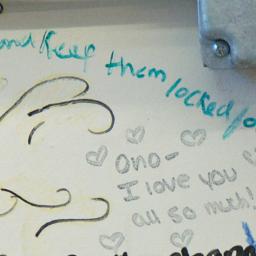 and keep them locked
Ono-
I love you
all so much!